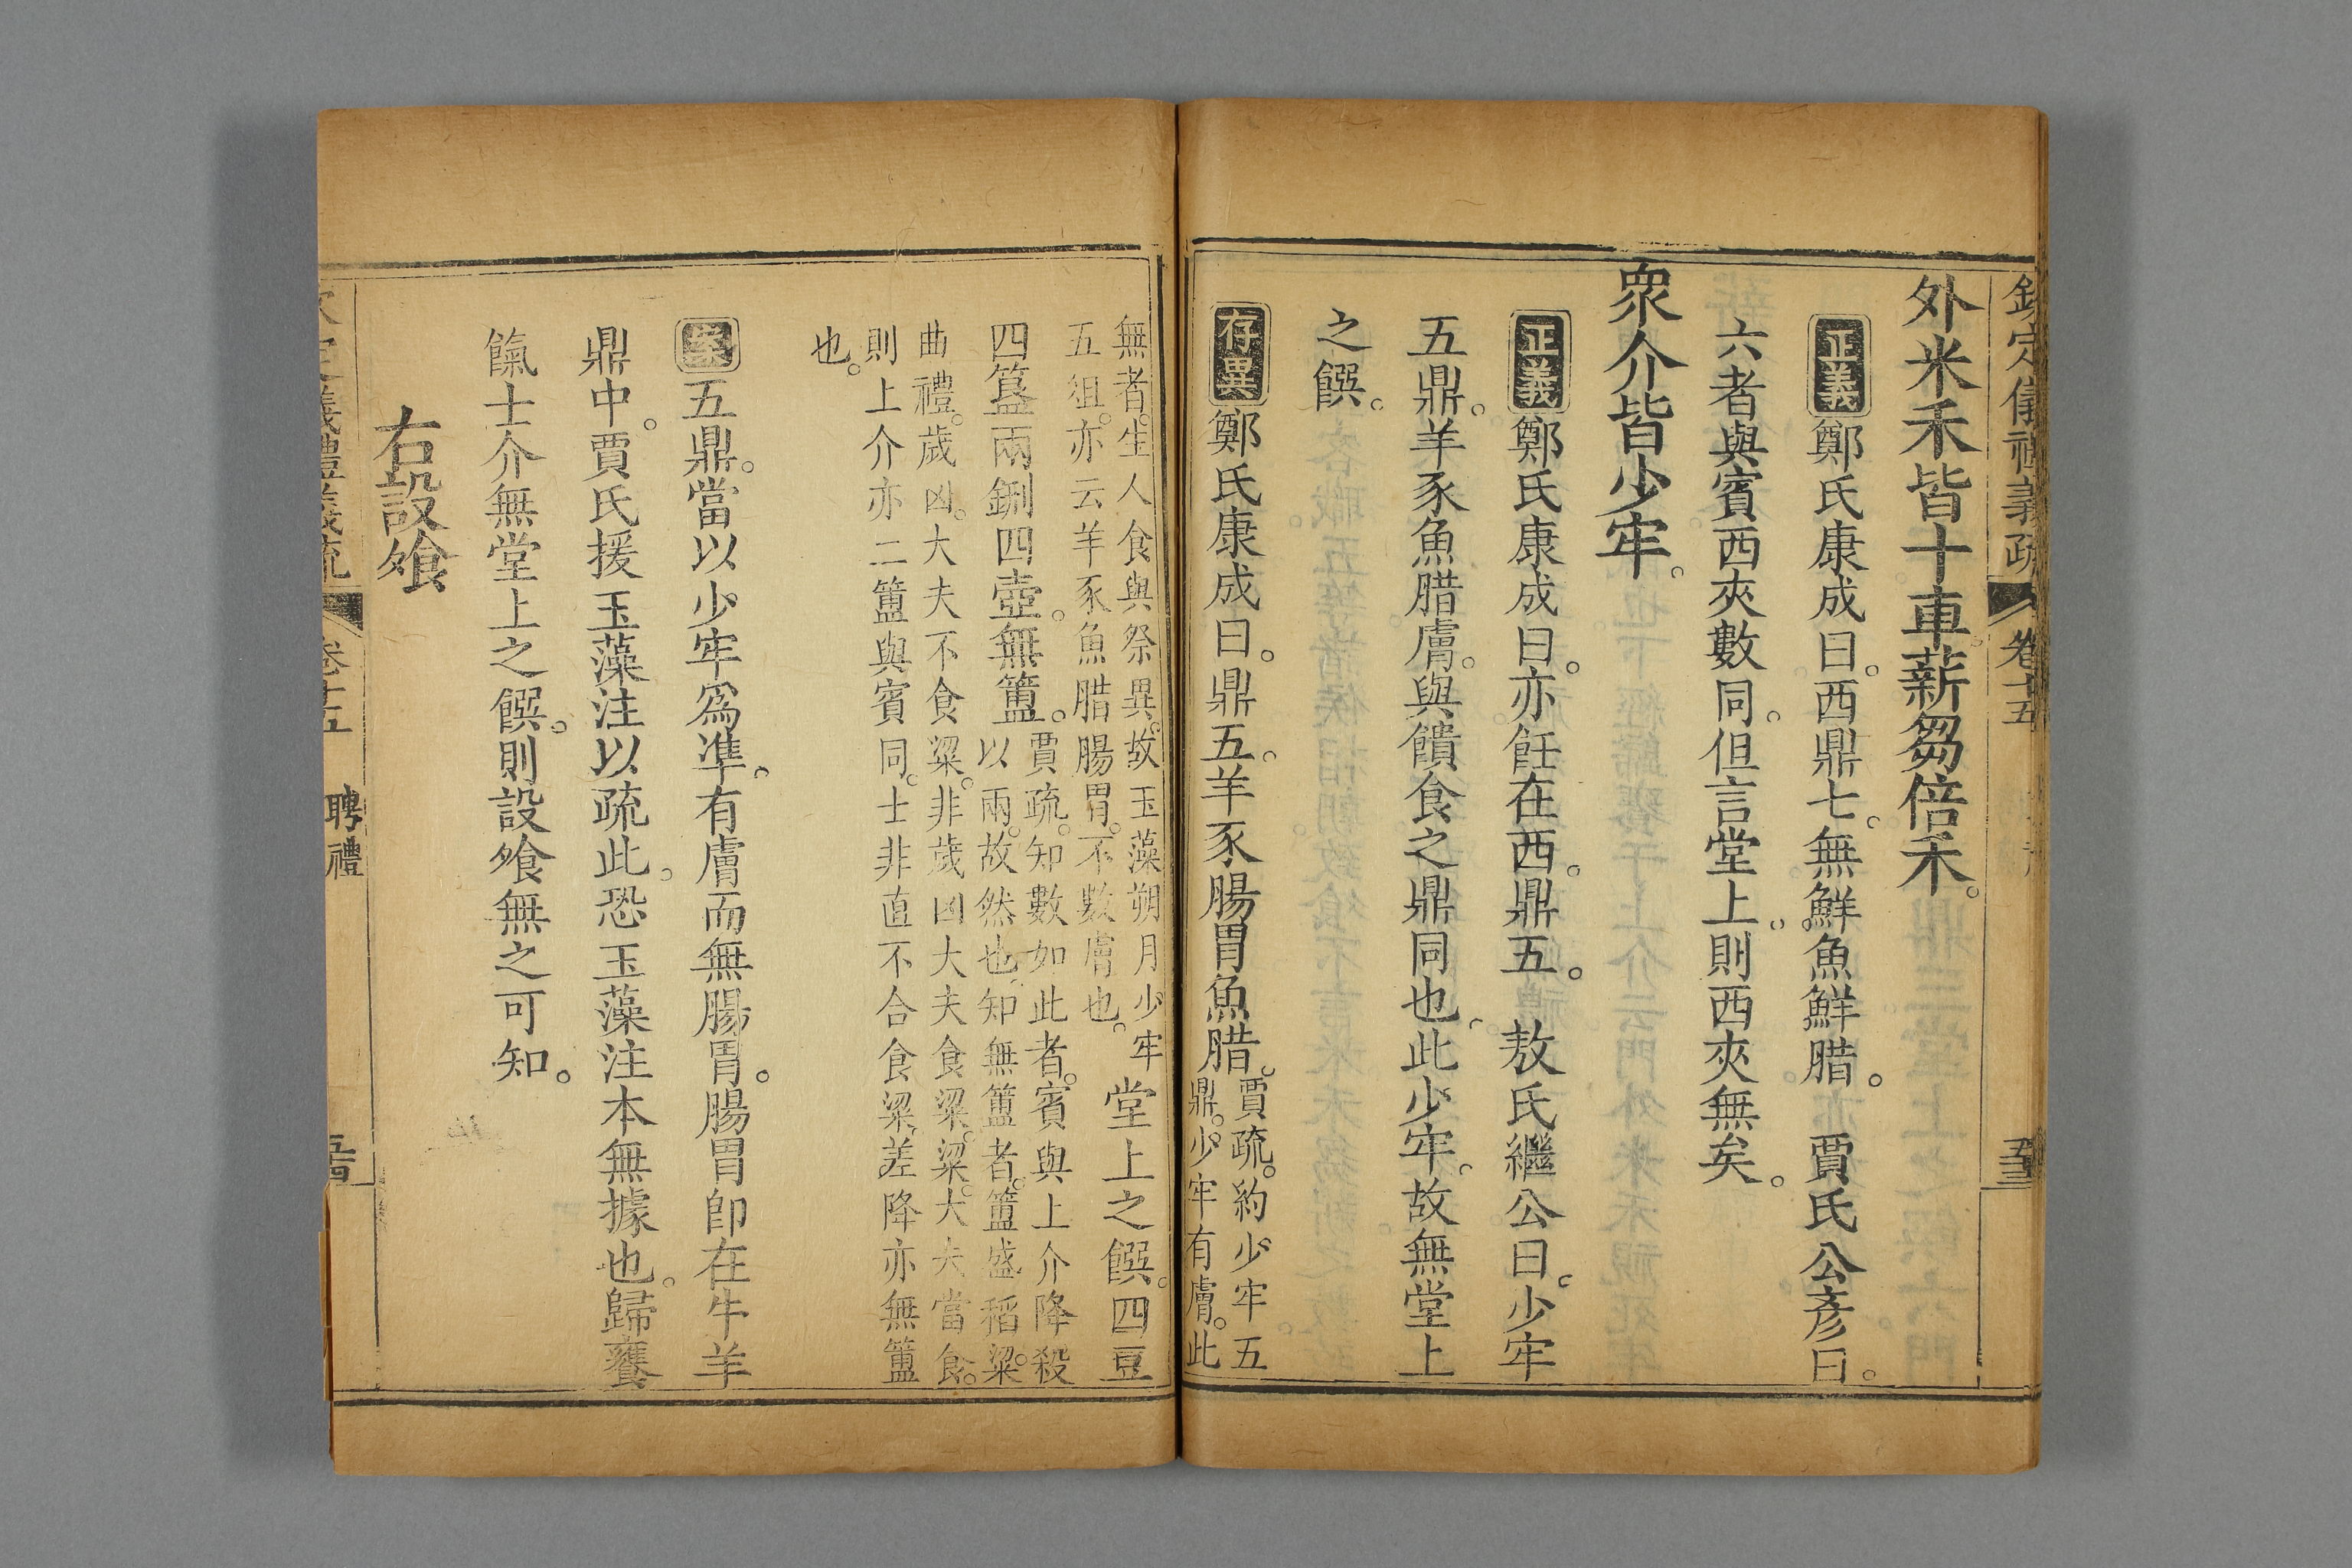 欽定儀禮義疏 卷十五
外米禾皆十車薪芻倍禾。
正義 鄭氏康成曰。西鼎七。無鮮魚鮮腊。 賈氏公彥曰。
六者與賓西夾數同。但言堂上。則西夾無矣。
眾介皆少牢。
正義 鄭氏康成曰。亦飪在西。鼎五。 敖氏繼公曰。少牢
五鼎。羊豕魚腊膚。與饋食之鼎同也。此少牢。故無堂上
之饌。
存異 鄭氏康成曰。鼎五。羊豕腸胃魚腊。
賈疏。約少牢五
鼎。少牢有膚。此
無者。生人食與祭異。故玉藻朔月少牢
五俎。亦云羊豕魚腊腸胃。不數膚也。
堂上之饌。四豆
四簋兩鉶四壺。無簠。
賈疏。知數如此者。賓與上介降殺
以兩。故然也。知無簠者。簠盛稻粱。
曲禮。歲凶。大夫不食粱。非歲凶大夫食粱。粱。大夫當食。
則上介亦二簠與賓同。士非直不合食粱。差降亦無簠
也。
案 五鼎。當以少牢為準。有膚而無腸胃。腸胃即在牛羊
鼎中。賈氏援玉藻注以疏此。恐玉藻注本無據也。歸饔
餼士介無堂上之饌。則設飧無之可知。
右設飧
欽定儀禮義疏 卷十五 聘禮